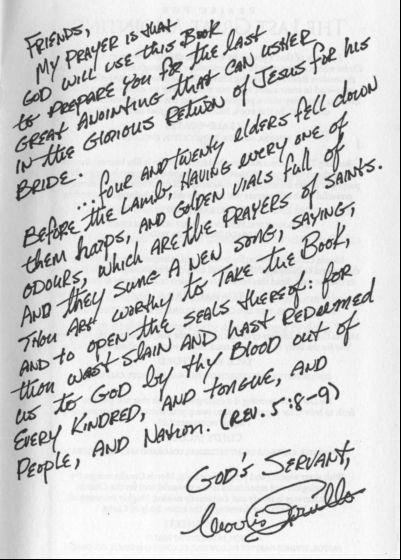 FRIENDS,
MY PRAYER IS that
GOD WILL USE this BOOK
to PREPARE YOU FOR the LAST
GREAT ANOINTING that CAN USHER
IN the GLORIOUS RETURN OF JESUS FOR his
BRIDE.
...FOUR AND twenty elders fell down
BEFORE the LAMB, HAVING every one of
them harps, AND GOLDEN VIALS full of
ODOURS, WHICH ARE the PRAYERS of SAINTS.
AND they SUNG A NEW SONG, SAYING,
THOU ART WORTHY to TAKE the BOOK,
AND to OPEN the SEALS thereof: for
thou WAST SLAIN AND hast REDEEMED
us to GOD by thy BLOOD out of
EVERY KINDRED, AND tongue, AND
PEOPLE, AND NATION. (REV. 5:8-9)
GOD'S SERVANT,
Morris Cerullo